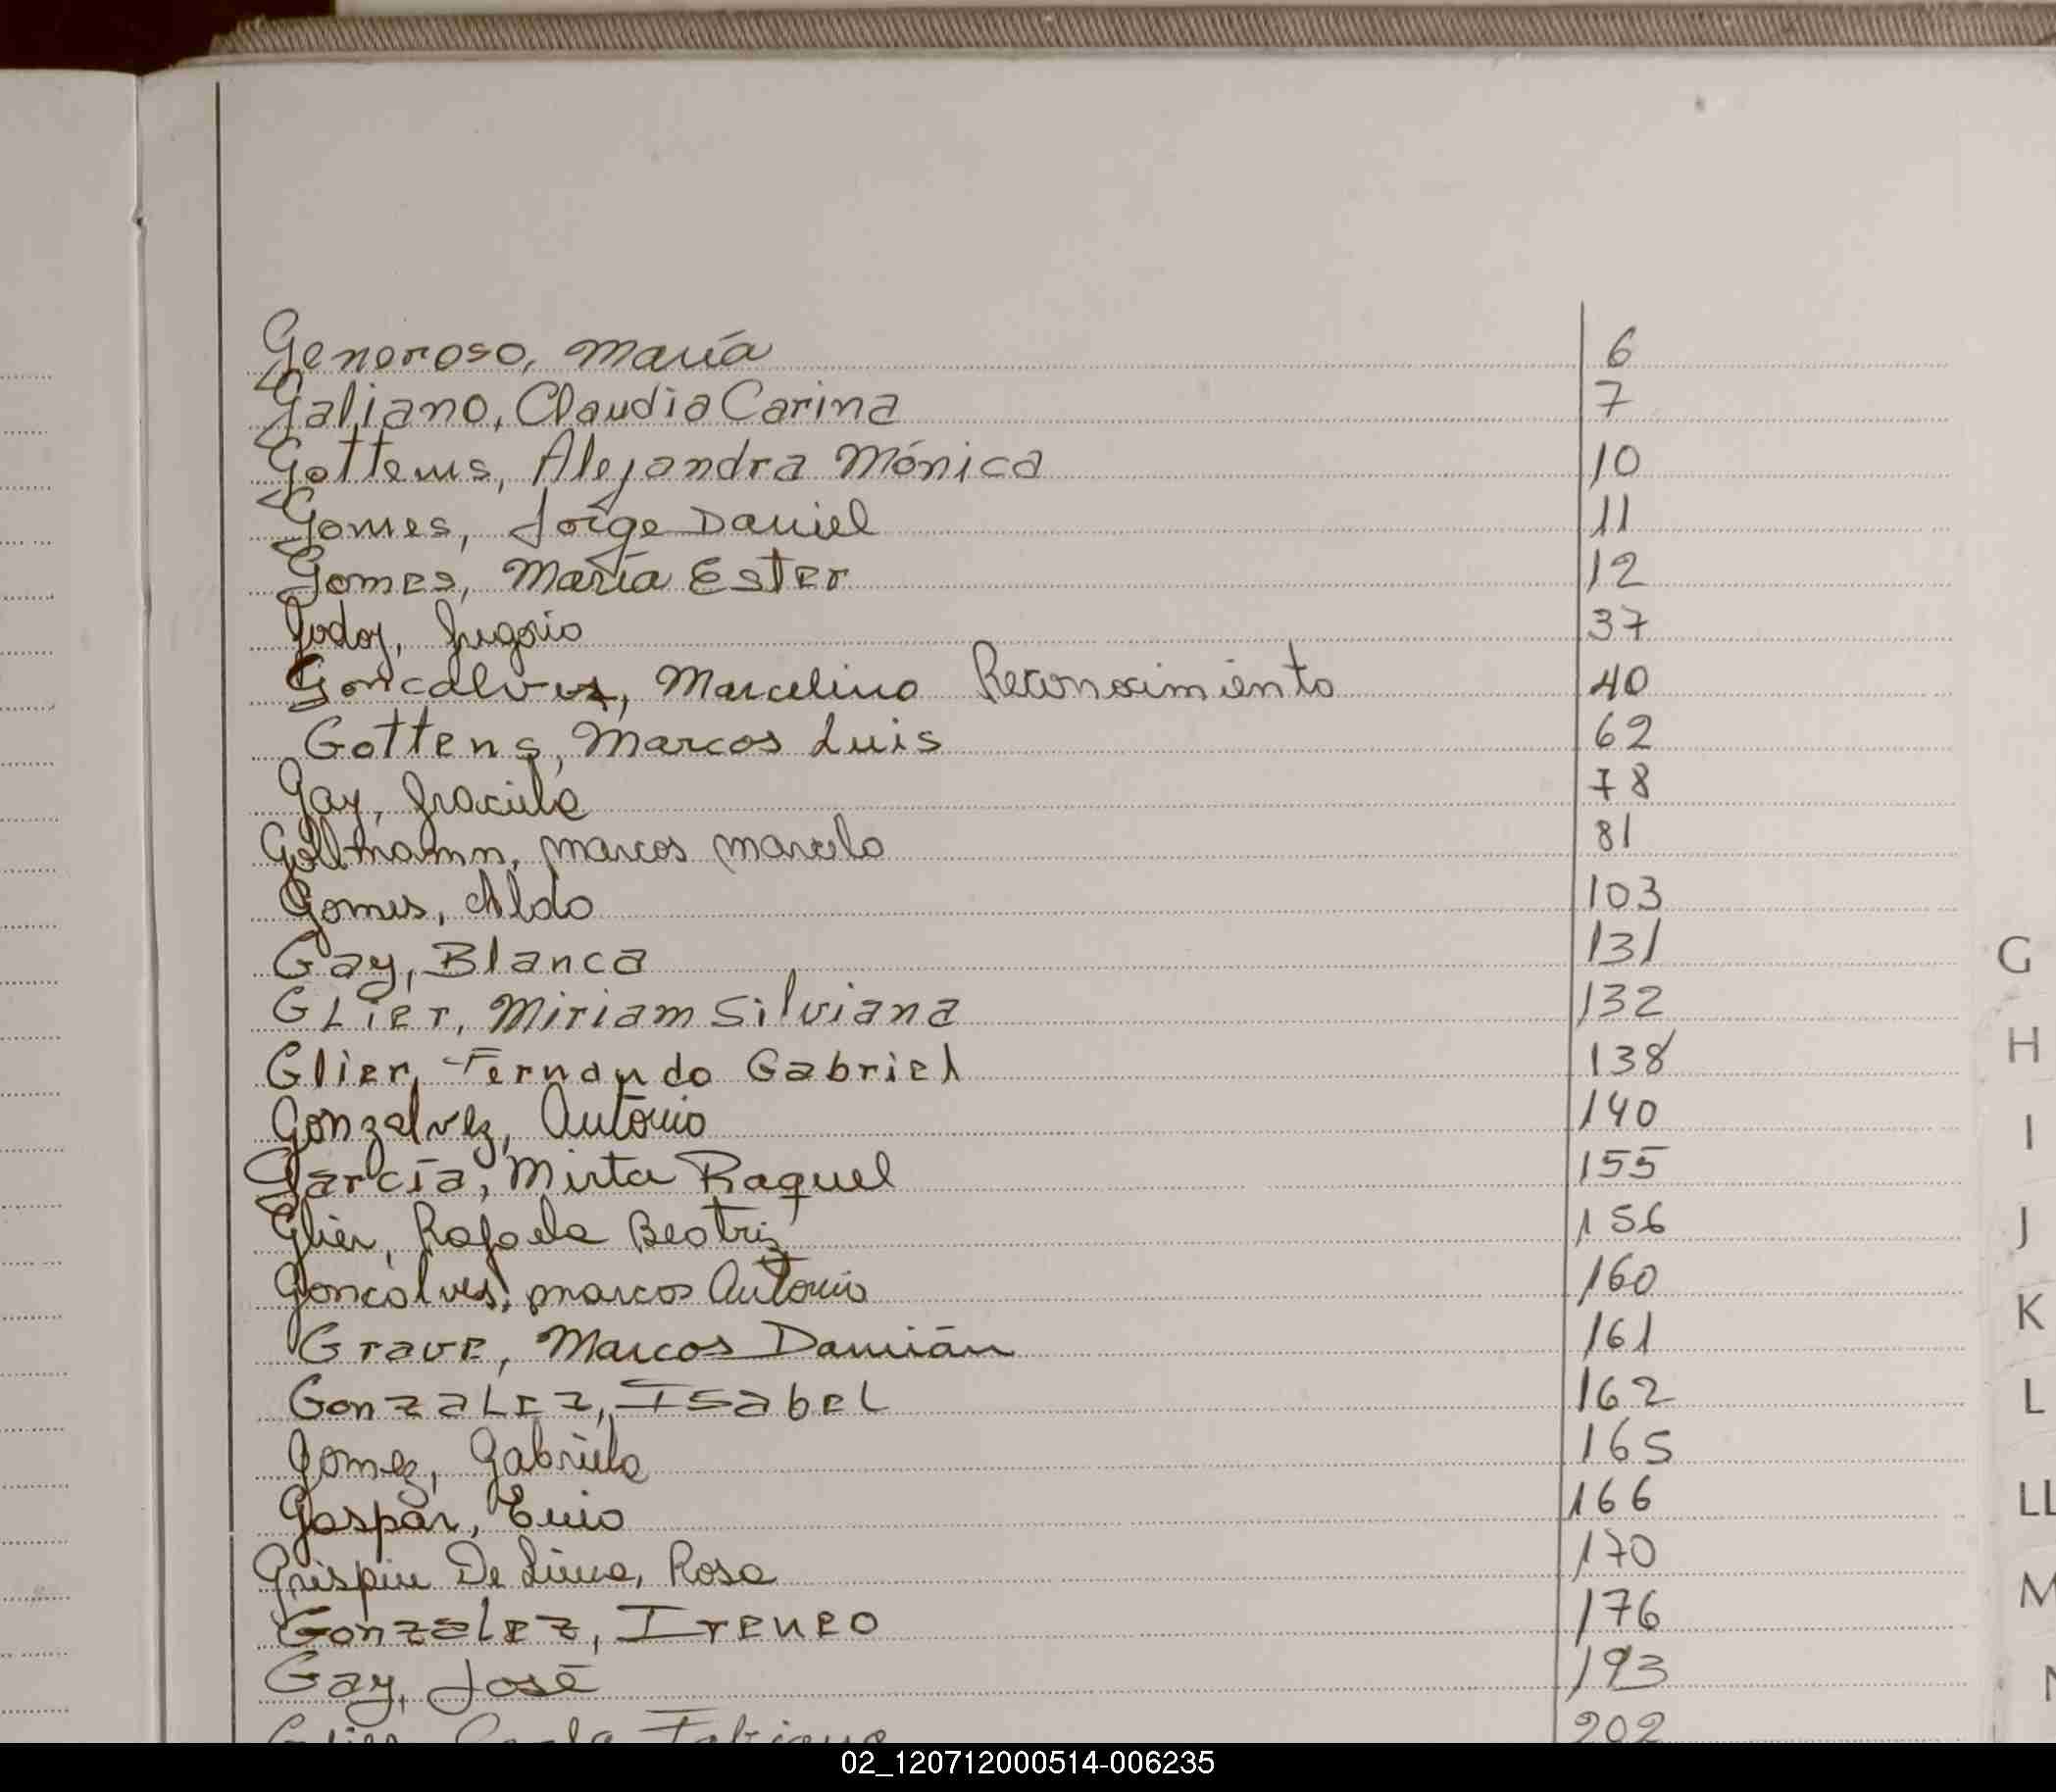 Generoso, María 6
Galiano, Claudia Carina 7
Gottems, Alejandra Mónica 10
Gomes, Jorge Daniel 11
Gomes, María Ester 12
Godoy, Gregorio 37
Goncalvez, Marcelino Reconocimiento 40
Gottens, Marcos Luis 62
Gay, Graciela 78
Gollmamn, Marcos Marcelo 81
Gomes, Aldo 103
Gay, Blanca 131
GLier, Miriam Silviana 132
Glier, Fernando Gabriel 138
Gonzalvez, Antonio 140
García, Mirta Raquel 155
Glier, Rafaela Beatriz 156
Goncalves, Marcos Antonio 160
Grave, Marcos Damián 161
GonzaLez, Isabel 162
Gomez, Gabriela 165
Gaspar, 166
Grispin De Lima, Rosa 170
Gonzalez, Ireneo 176
Gay, José 193
Glier, Carla Fabiana 202
G
H
I
J
K
L
LL
M
02_120712000514-006235